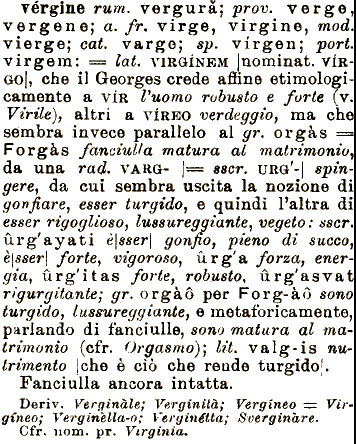 vérgine rum. vergură; prov. verge,
vergene; a. fr. virge, virgine, mod.
vierge; cat. varge; sp. vírgen; port.
virgem: = lat. VIRGÍNEM |nominat. VÍR-
GO|, che il Georges crede affine etimologi-
camente a VÍR l'uomo robusto e forte (v.
Virile), altri a VÍREO verdeggio, ma che
sembra invece parallelo al gr. orgàs =
Forgàs fanciulla matura al matrimonio,
da una rad. VARG- |= sscr. URG'-| spin-
gere, da cui sembra uscita la nozione di
gonfiare, esser turgido, e quindi l'altra di
esser rigoglioso, lussureggiante, vegeto: sscr.
ûrg'ayati è|sser| gonfio, pieno di succo,
è|sser| forte, vigoroso, ûrg'a forza, ener-
gia, ûrg'itas forte, robusto, ûrg'asvat
rigurgitante; gr. orgàô per Forg-àô sono
turgido, lussureggiante, e metaforicamente,
parlando di fanciulle, sono matura al ma-
trimonio (cfr. Orgasmo); lit. valg-is nu-
trimento |che è ciò che rende turgido|.
Fanciulla ancora intatta.
Deriv. Verginàle; Verginità; Vergíneo = Vir-
gíneo; Verginèlla-o; Verginétta; Sverginàre.
Cfr. nom. pr. Virginia.